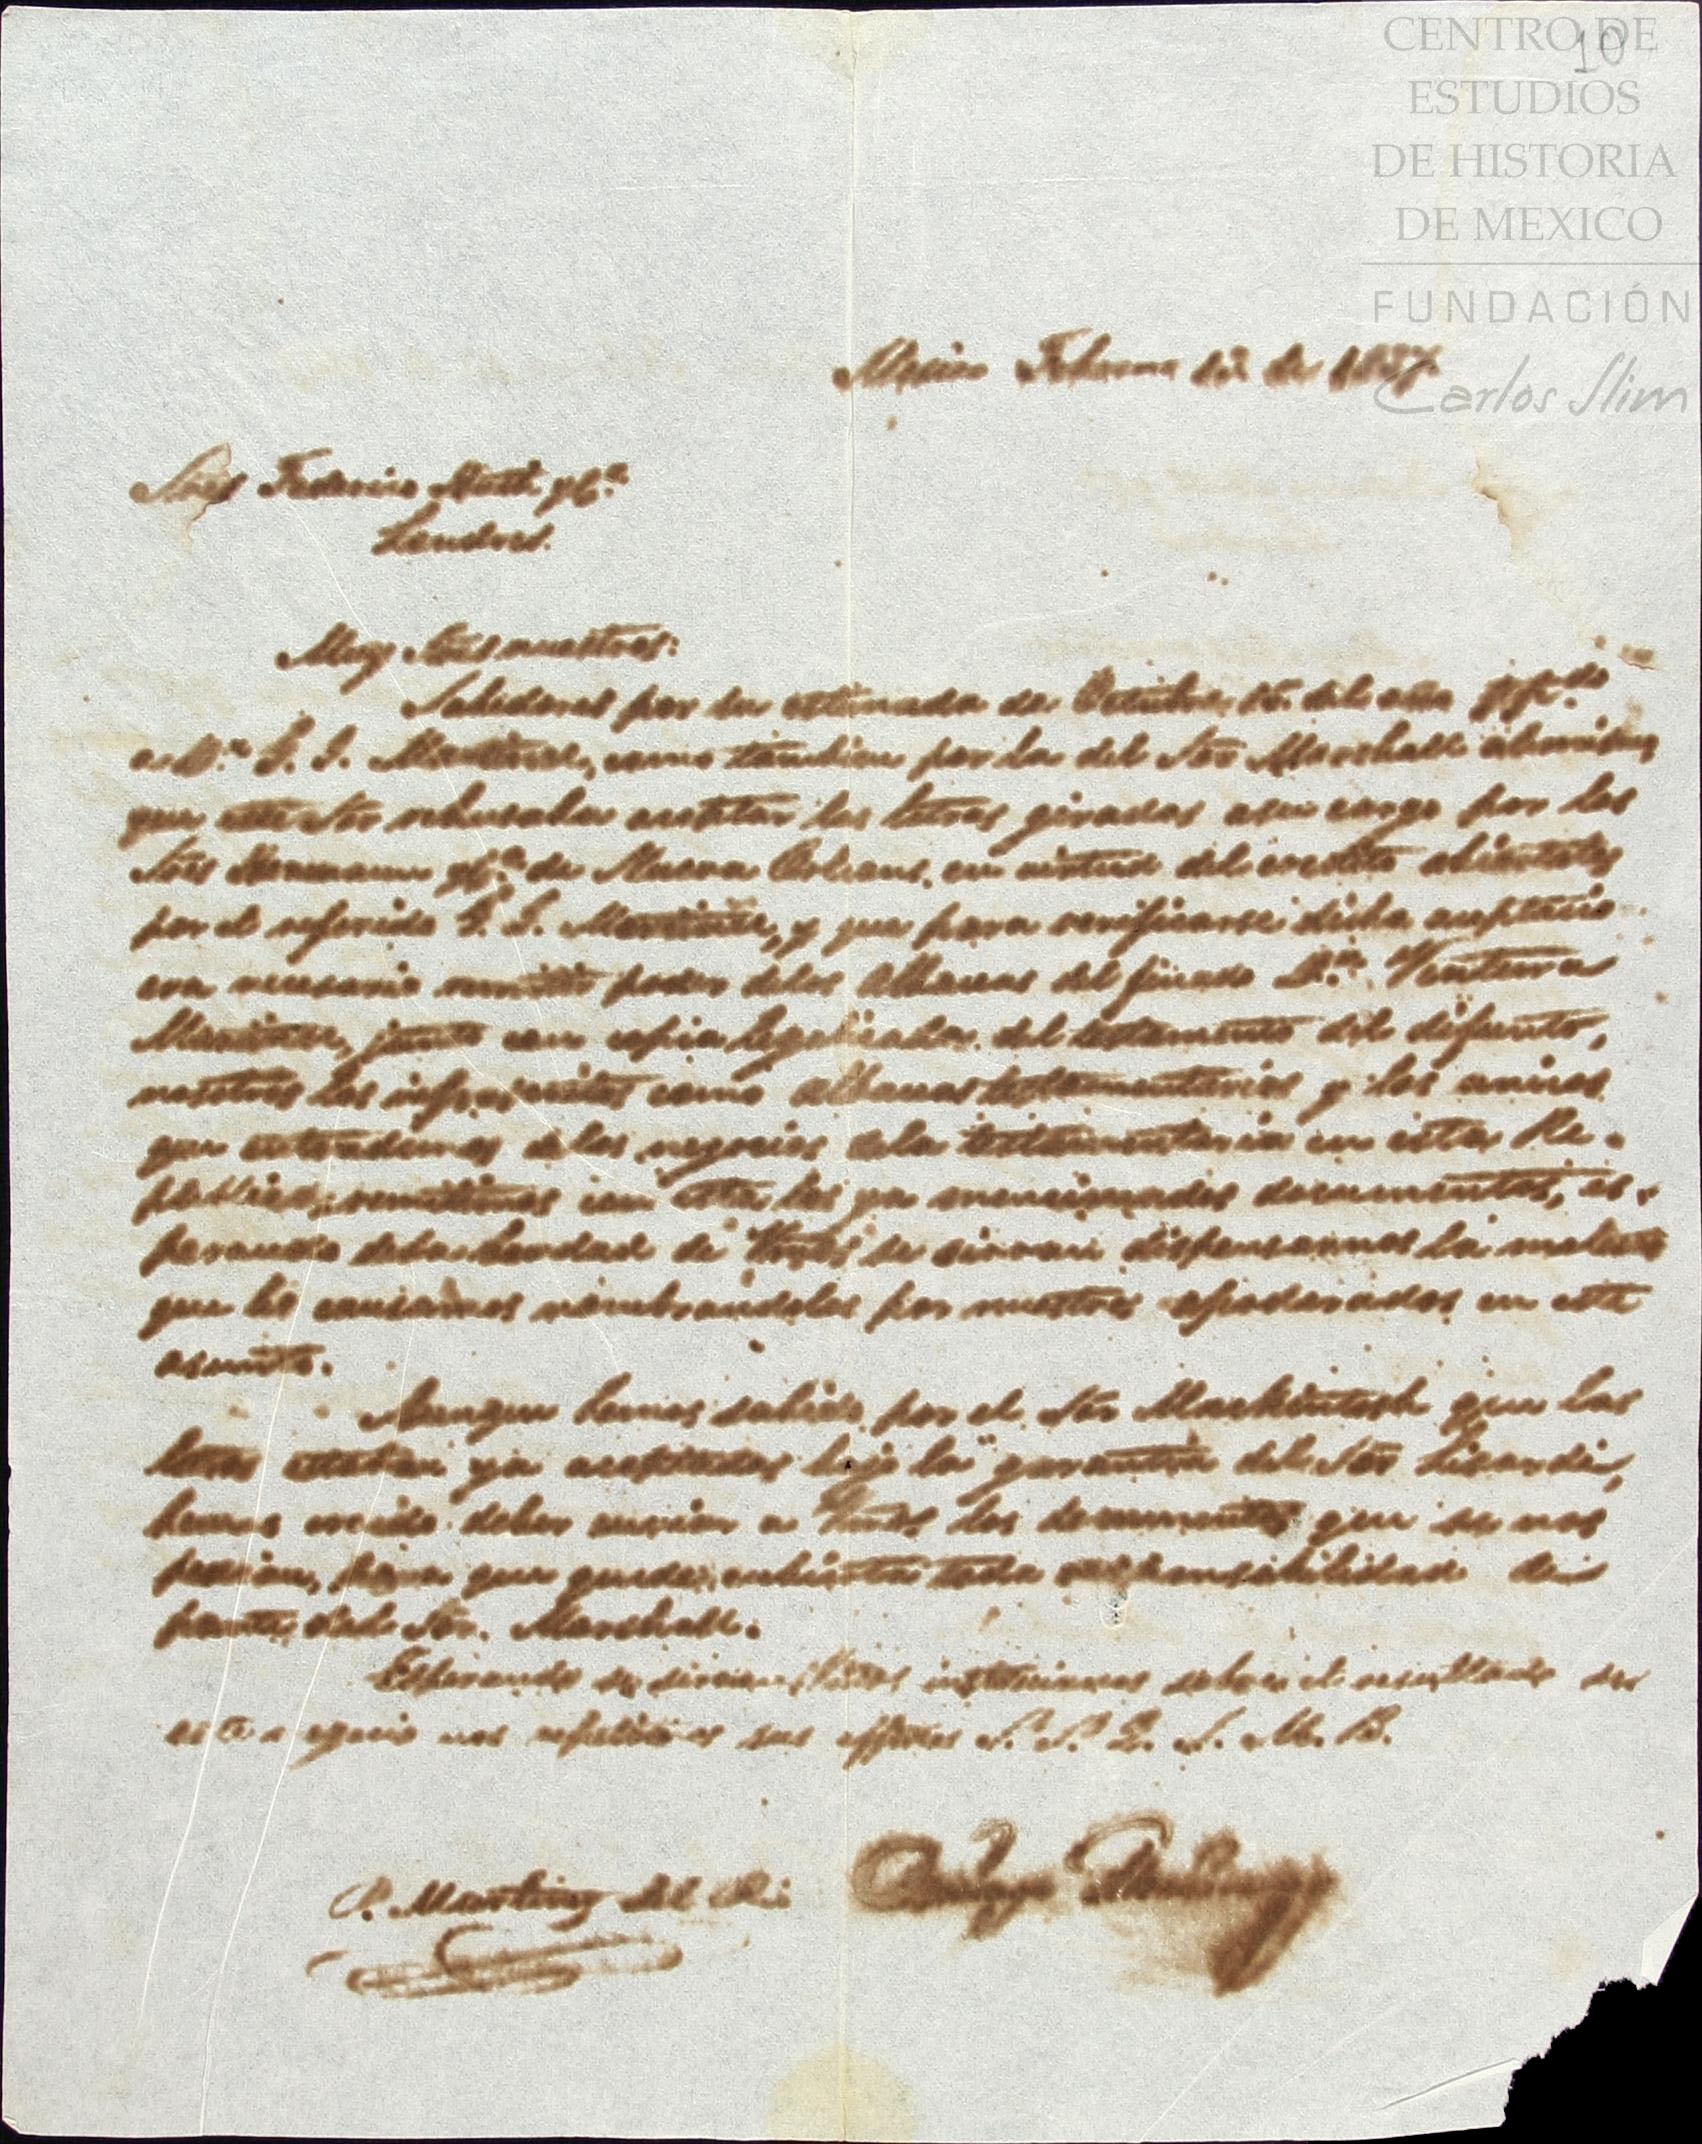 10
CENTRO DE
ESTUDIOS
DE HISTORIA
DE MEXICO
FUNDACIÓN
Carlos Slim
Mexico Febrero de 1837.
Sres Federico Huth y Ca.
Londres.
Muy Sres nuestros:
Sabedores por su estimada de Octubre 15. del año ppdo
a Dn. G. J. Martinez, como tambien por la del Sor Marshall al mismo,
que este Sor rehusaba aceptar las letras giradas a su cargo por los
Sres Hermann y Ca. de Nueva Orleans, en virtud del credito abiertoles
por el referido G. J. Martinez, y que para verificarse dicha aceptacio
era necesario remitir poder de los Albaceas del finado Dn. Ventura
Martinez, junto con copia legalizada del testamento del difunto,
nosotros los infrascritos como albaceas testamentarios y los unicos
que entendemos de los negocios de la testamentaria en esta Re-
publica, remitimos con esta los ya mencionados documentos, es-
perando de la bondad de Vmds se sirvan dispensarnos la molestia
que les causamos nombrandolos por nuestros apoderados en este
asunto.
Aunque hemos sabido por el Sor Mackintosh que las
letras estaban ya aceptadas bajo la garantia del Sor Lizardi,
hemos creido deber enviar a Vmds los documentos que se nos
pedian, para que quede cubierta toda responsabilidad de
parte del Sor. Marshall.
Esperando se sirvan Vmds sobre el resultado de
este negocio nos repetimos sus affmos S. S. Q. S. M. B.
P. Martinez del Rio